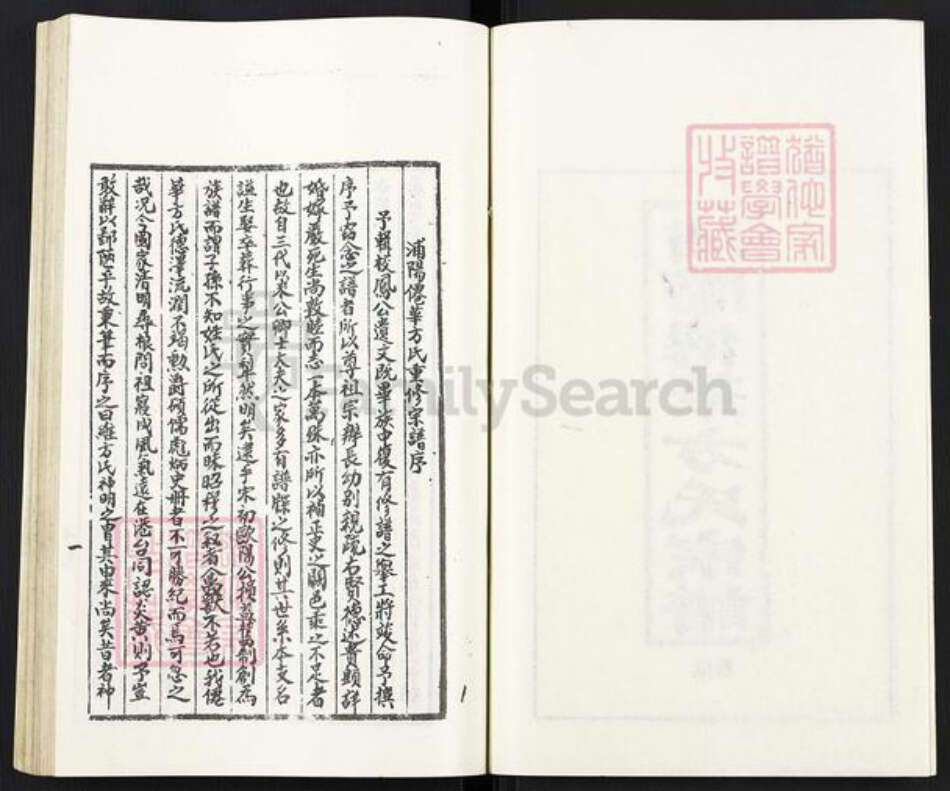 浦陽僊華方氏重修宗譜序
予輯校鳳公遺文既畢族中復有修譜之舉工將竣命予撰
序予竊念之譜者所以尊祖宗辦長幼别親疏右賢德述貴顯詳
婚嫁嚴死生尚敦睦而志一本萬殊亦所以補正史之闕邑乘之不足者
也故自三代以來公卿士大夫之家多有譜牒之修則其世系本支名
諡生娶卒葬行事之實犁然明矣逮乎宋初歐陽公損益舊制創為
族譜而謂子孫不知姓氏之所從出而昧昭穆之叙者禽獸不若也我僊
華方氏德澤流潤不殆勲爵碩儒彪炳史册者不可勝紀而焉可忽之
哉况今國家清明尋根問祖寖成風氣遠在港台同認炎黄則予豈
敢辭以鄙陋乎故秉筆而序之曰維方氏神明之胄其由來尚矣昔者神
一
1
猶他家
譜學會
收藏
FamilySearch
方氏宗譜